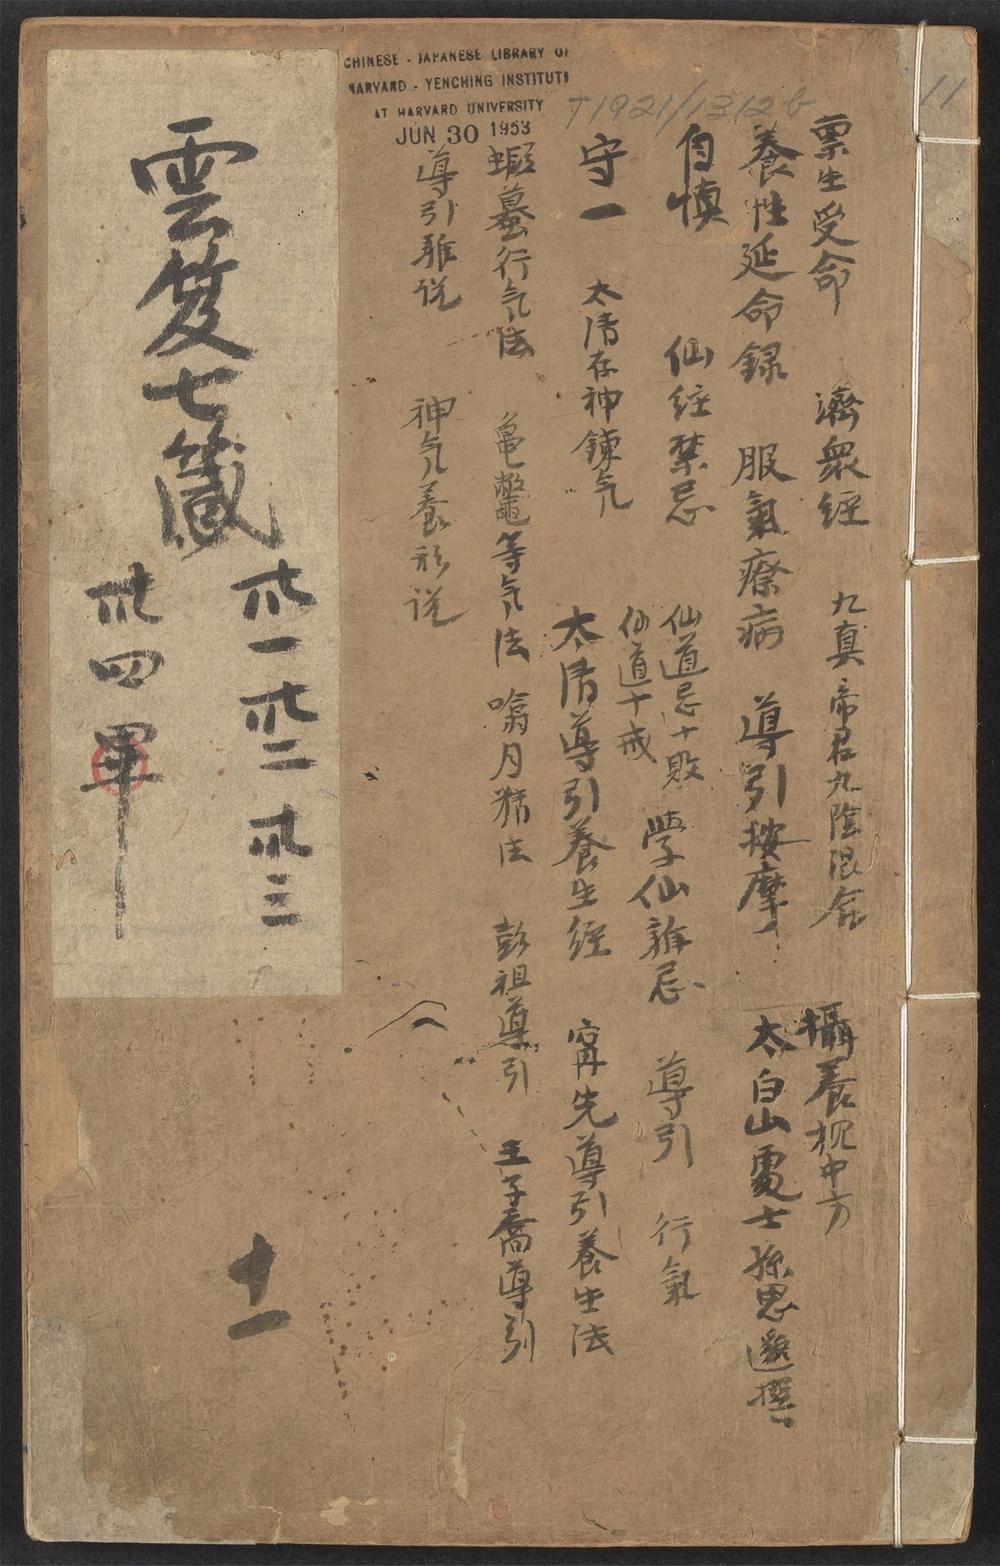 稟生受命 濟衆經 九真帝君九陰混合 攝養枕中方
養性延命録 服氣療病 導引按摩 太白山處士孫思邈撰
自慎 仙經禁忌 仙道忌十敗 仙道十戒 學仙雜忌 導引 行氣
守一 太清存神鍊气 太清導引養生經 甯先導引養生法
蝦蟇行气法 龜鼈等气法 噏月精法 彭祖導引 王子喬導引
導引雜说 神气養形说
雲笈七籤
卅一 卅二 卅三
卅四 畢
十一
CHINESE - JAPANESE LIBRARY OF
HARVARD - YENCHING INSTITUTE
AT HARVARD UNIVERSITY
JUN 30 1953
T1921/1312b
11